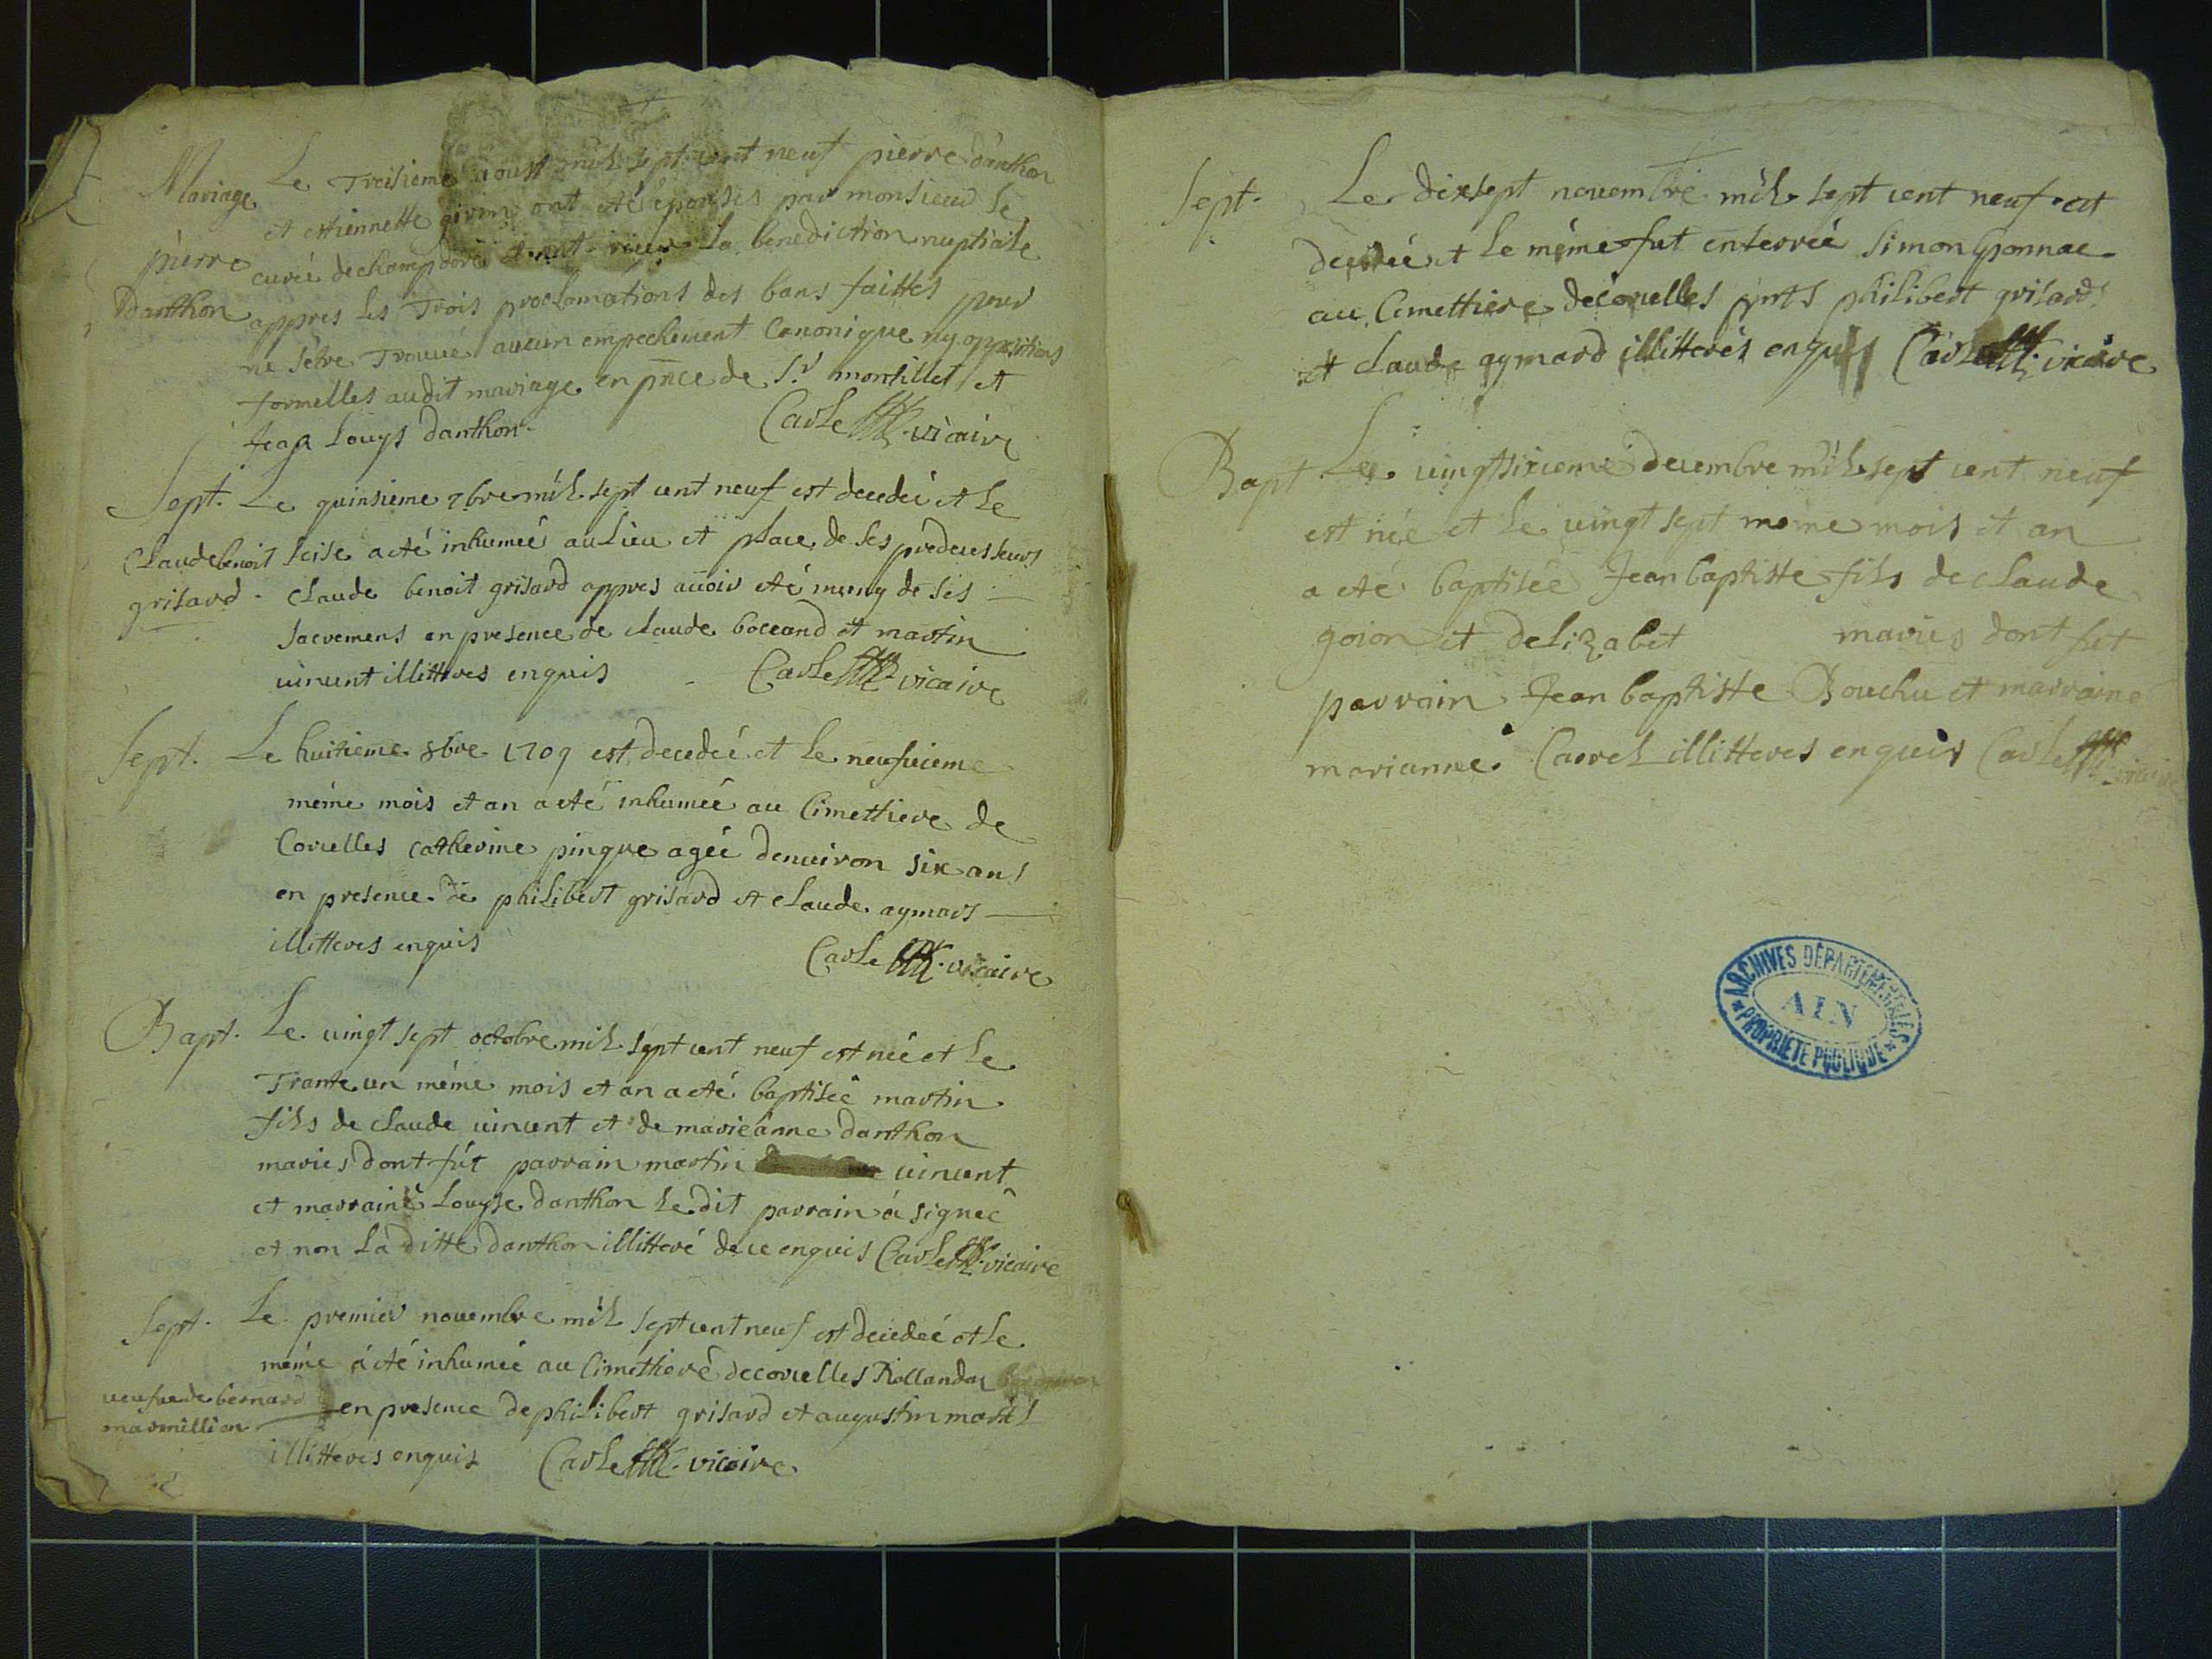 Mariage
pierre
danthon
Le Treisieme aoust mil sept cent neuf pierre danthon
et estiennette ont eté épousés par monsieur le
curéé de champdore et ont la benediction nuptialle
appres les Trois proclamations des bans faittes pour
ne sêtre Trouvé aucun empechement Canonique ny oppositions
formelles audit mariage en pnce de Sr montillet et
Jean Louys danthon Carle vicaire
Sept.
Claude benoit
grisard
Le quinsieme 7bre mil sept cent neuf est decedéé et le
seise a eté inhuméé au lieu et place de ses predecesseurs
claude benoit grisard appres auoir eté muny de ses
sacremens en presence de claude boccand et martin
uincent illitteres enquis Carle vicaire
Sept.
Le huitieme 8bre 1709 est decedéé et le neufuieme
méme mois et an a eté inhuméé au Cimettiere de
Corcelles catherine pingue agéé denuiron six ans
en presence de philibert grisard et claude aymard
illitteres enquis Carle vicaire
Bapt.
Le uingt sept octobre mil sept cent neuf est néé et le
Trante un méme mois et an a eté baptiséé martin
fils de claude uincent et de marieanne danthon
mariés dont fút parrain martin uincent
et marraine Louyse danthon le dit parrain a signéé
et non la ditte danthon illitteré de ce enquis Carle vicaire
Sept.
Le premier nouembre mil sept cent neuf est decedéé et le
méme a eté inhuméé au Cimettiere de corcelles Rollanda
ueufue de bernard
marmillion
en presence de philibert grisard et augustin martel
illitteres enquis Carle vicaire
Sept.
Le dixsept nouembre mil sept cent neuf est
decedéé et le méme fut enterréé Simon ponnae
au Cimettiere de corcelles pnts philibert grisard
et claude aymard illitterés enquis Carle vicaire
Bapt.
Le uingtsixieme decembre mil sept cent neuf
est néé et le uingt sept méme mois et an
a eté baptiséé Jean baptiste fils de claude
goion et delizabet mariés dont fut
parrain Jean baptiste Bouchu et marraine
marianne Carrel illitteres enquis Carle vicaire
ARCHIVES DÉPARTEMENTALES
AIN
PROPRIÉTÉ PUBLIQUE